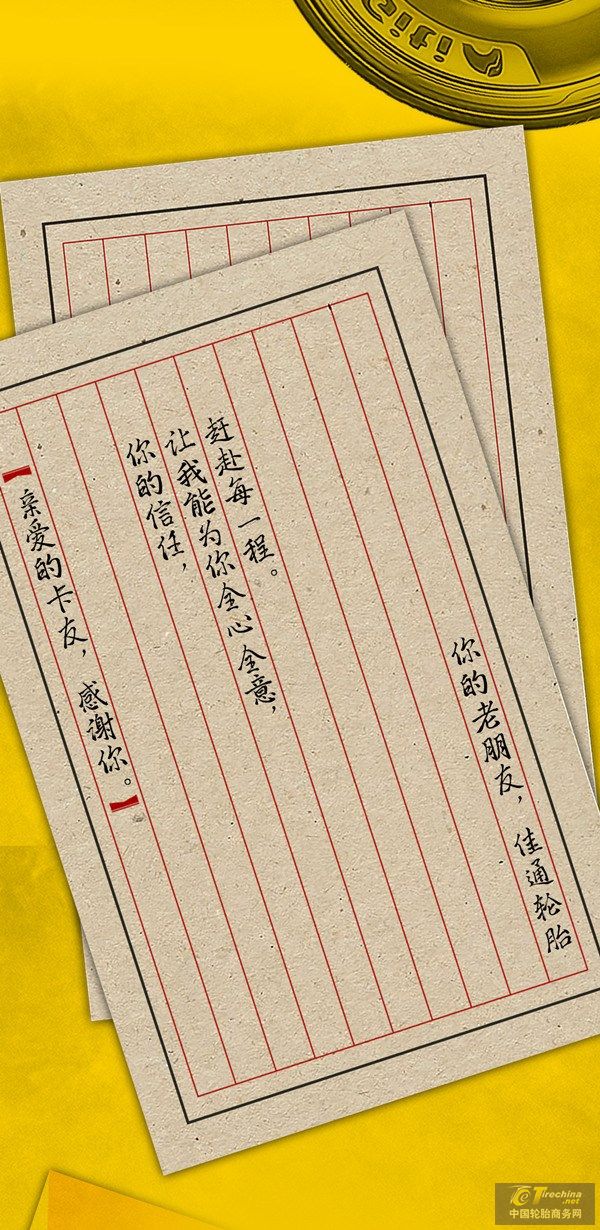 【亲爱的卡友，感谢你。】
你的信任，
让我能为你全心全意，
赶赴每一程。
你的老朋友，佳通轮胎
Tirechina
.net
中国轮胎商务网